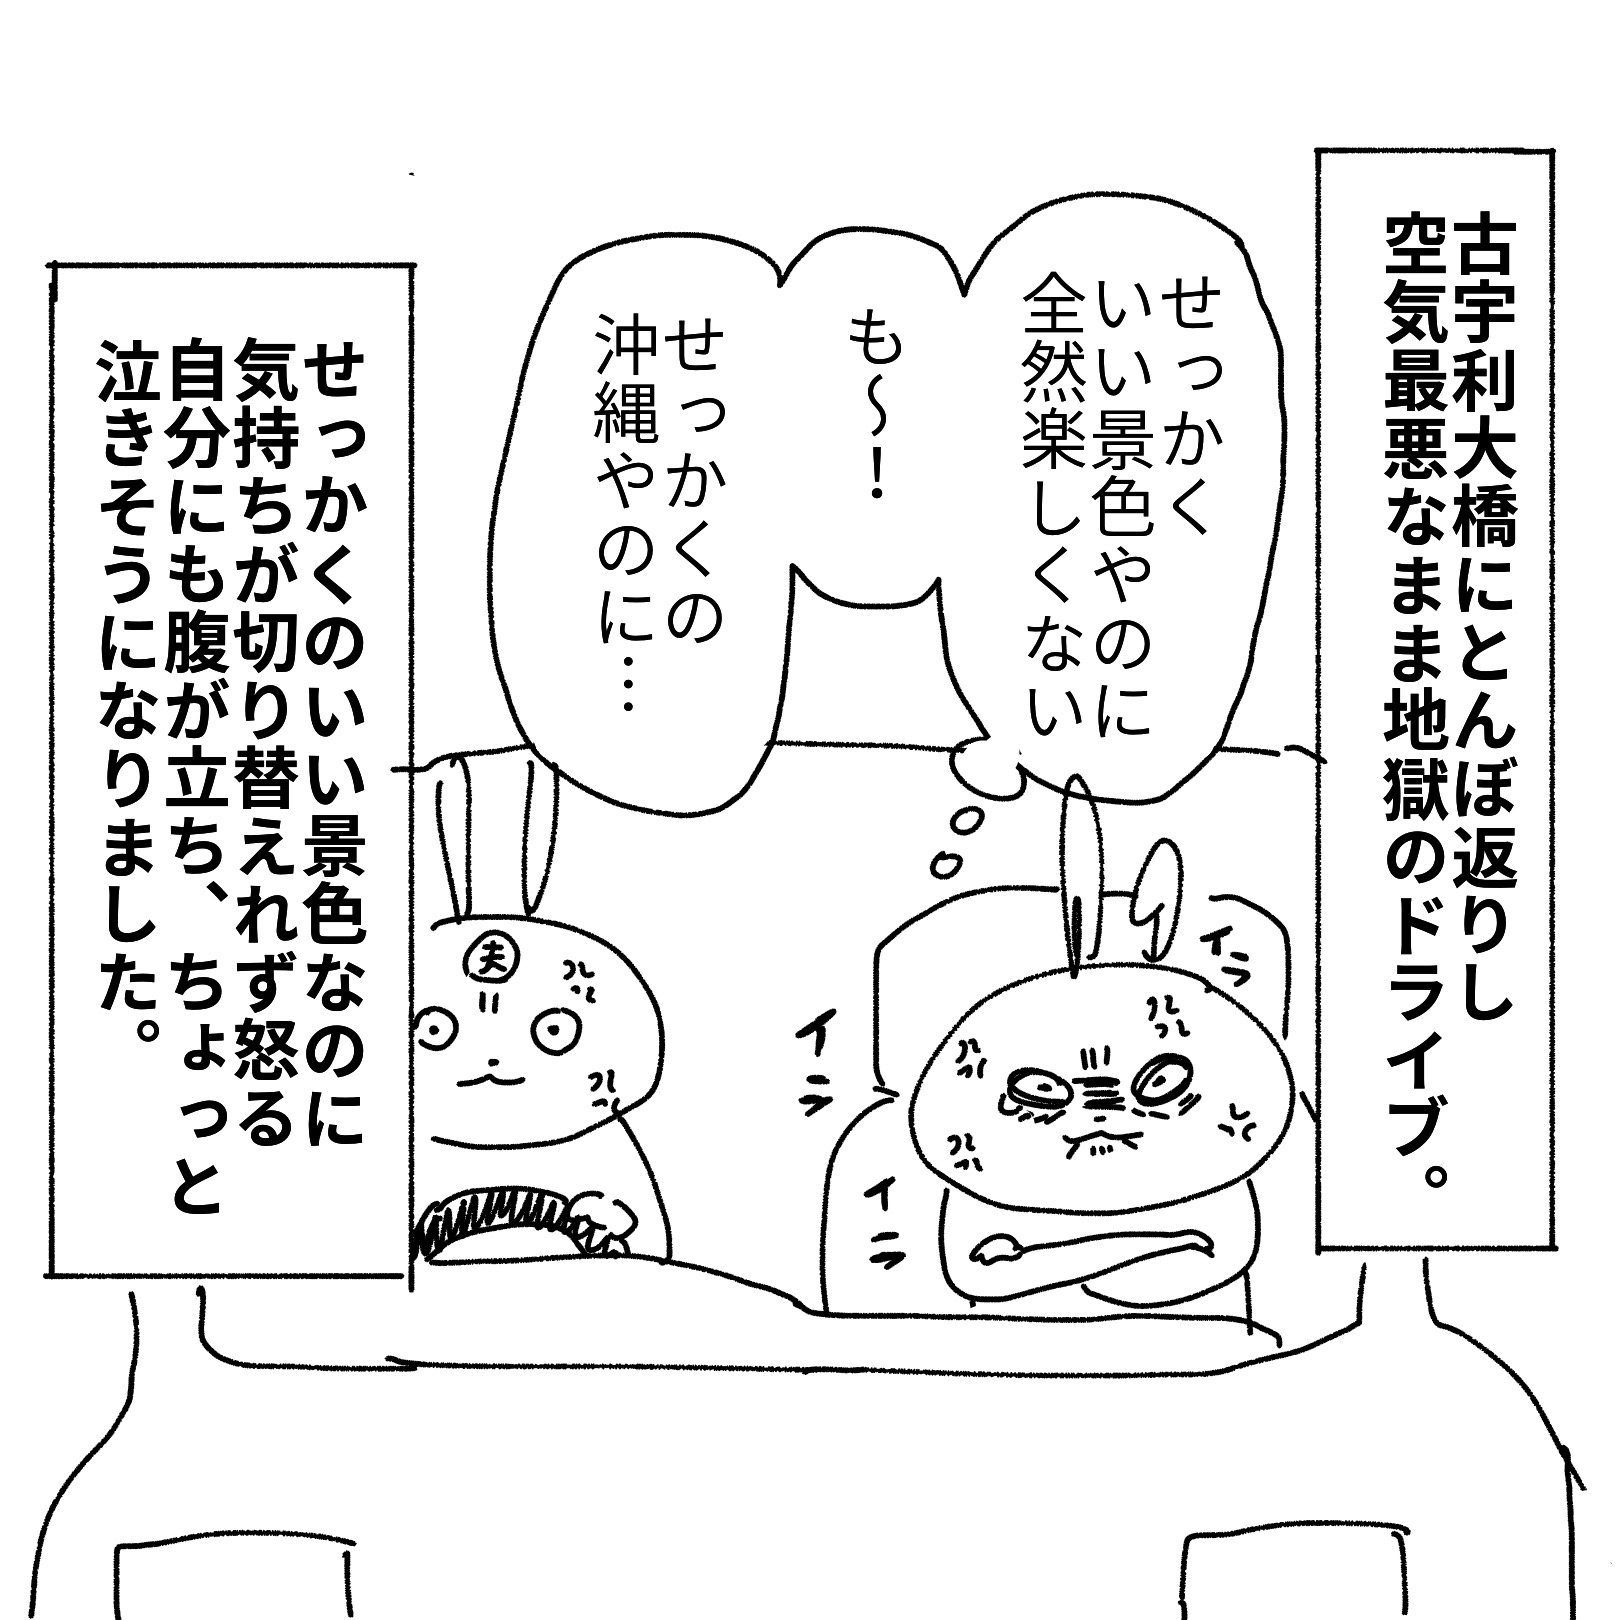 古宇利大橋にとんぼ返りし
空気最悪なまま地獄のドライブ。
せっかく
いい景色やのに
全然楽しくない
も〜！
せっかくの
沖縄やのに…
イラ
イラ
イラ
夫
せっかくのいい景色なのに
気持ちが切り替えれず怒る
自分にも腹が立ち、ちょっと
泣きそうになりました。